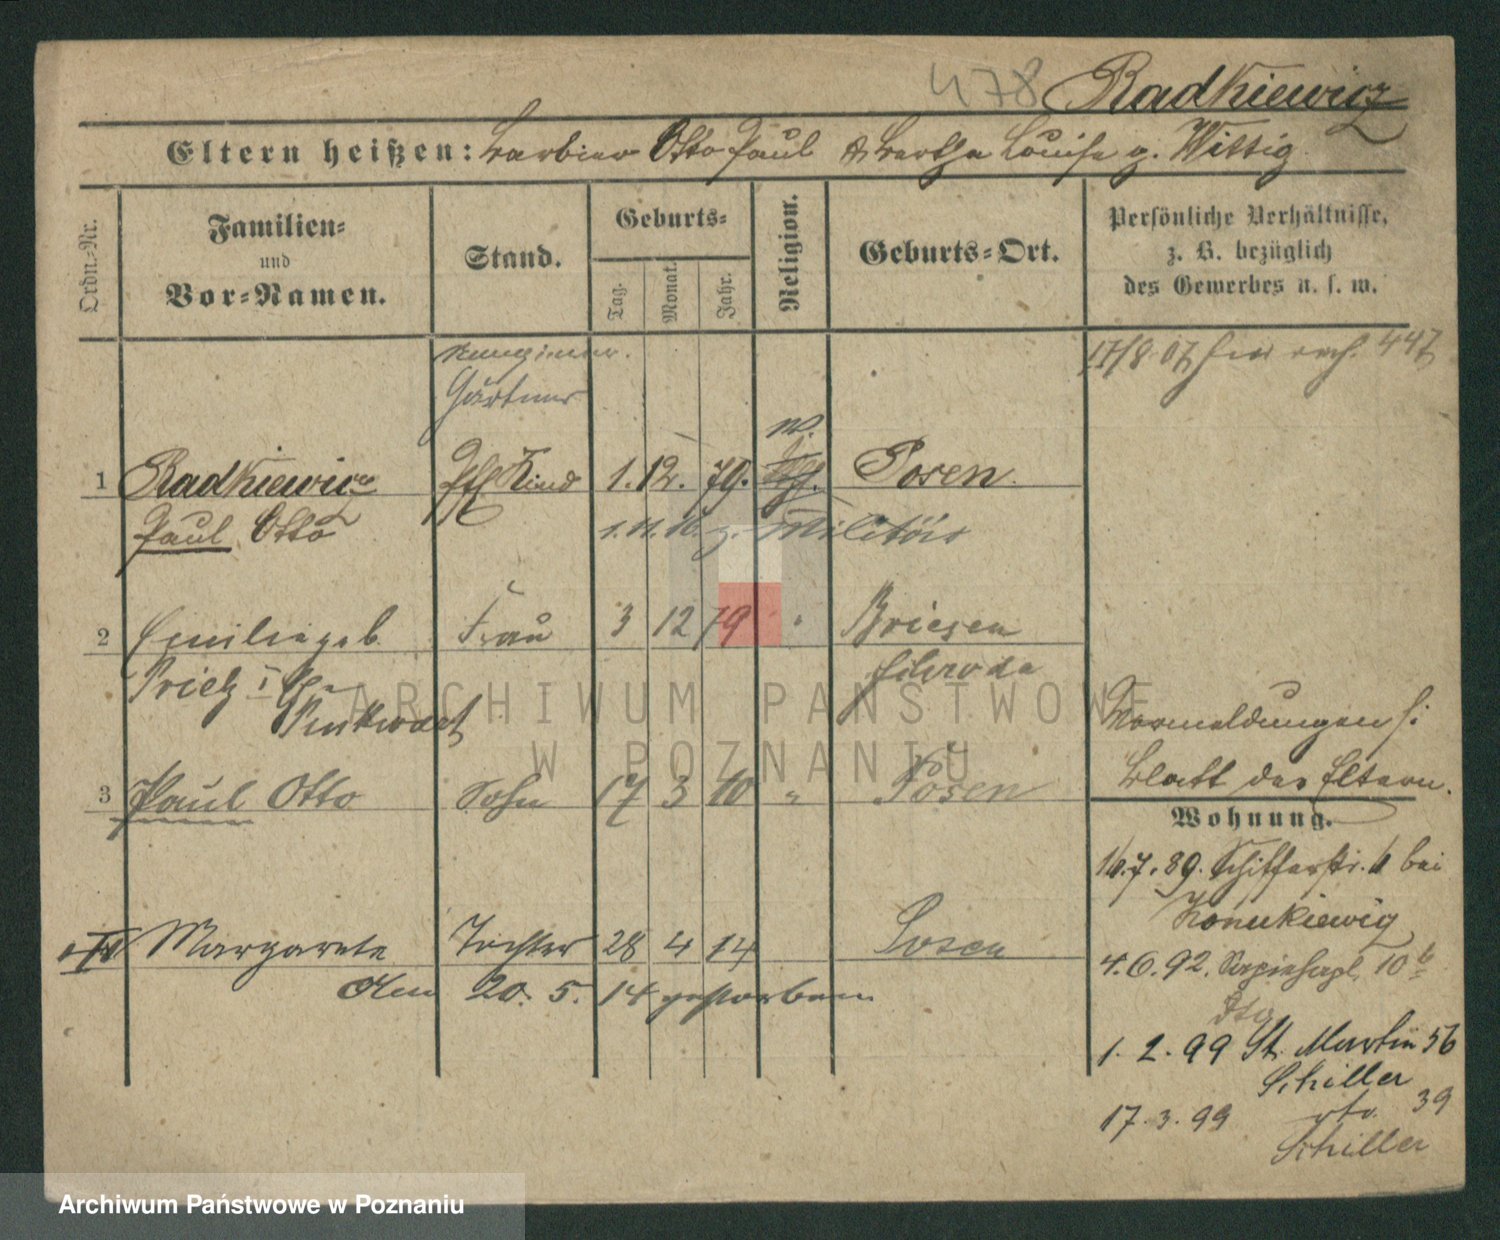 478 Radkiewicz
Eltern heißen: Barbier Otto Paul & Bertha Louise g. Wittig
Ordn.-Nr.
Familien-
und
Vor-Namen.
Stand.
Geburts-
Tag.
Monat.
Jahr.
Religion.
Geburts-Ort.
Persönliche Verhältnisse,
z. B. bezüglich
des Gewerbes u. s. w.
17/8 07 447
Gärtner
1 Radkiewicz Kind 1. 12. 79. Posen
Paul Otto Militär
2 Emilie geb. Frau 3 12 79 " Briesen
Prietz
Vormeldungen s.
3 Paul Otto Sohn 17 3 10 " Posen
Blatt der Eltern.
Wohnung.
16.7.89. Schifferstr. bei
Margarete Tochter 28 4 14 Posen
4.6.92. 10
Am 20. 5. 14 gestorben
1. 2. 99 St. Martin 56
Schiller
17. 3. 99 39
Schiller
ARCHIWUM PAŃSTWOWE
W POZNANIU
Archiwum Państwowe w Poznaniu